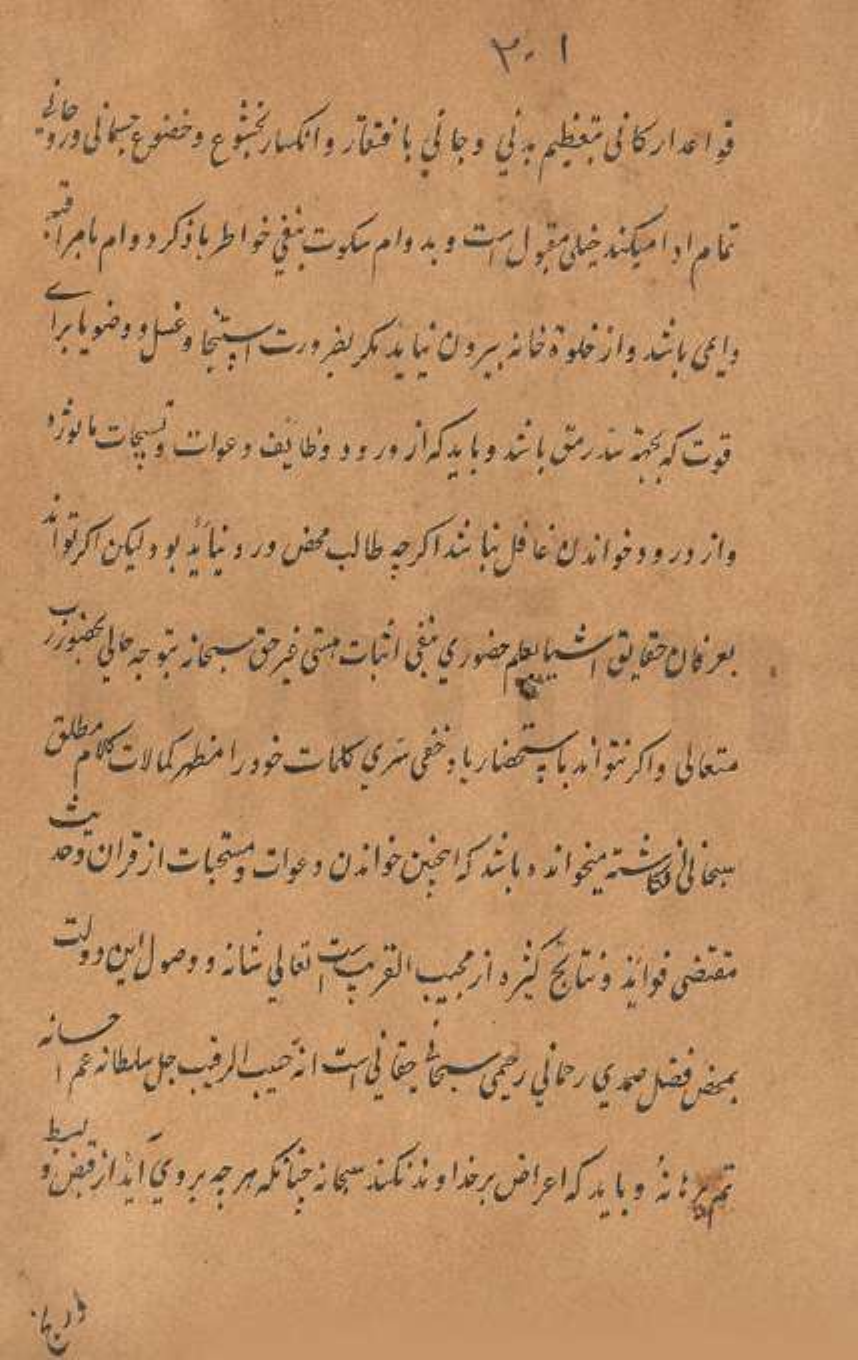 ۲۰۱
قواعد ارکانی بتعظیم بدنی و جانی با فتقار و انکسار بخشوع و خضوع جسمانی و روحانی
تمام ادا میکند خیلی مقبول است و بدوام سکوت بنفی خواطر با ذکر دوام با مراقبه
دایمی باشد و از خلوة خانه بیرون نیاید مکر بضرورت استنجا و غسل و وضو یا برای
قوت که بجهة سد رمق باشد و باید که از ورود وظائف دعوات و تسبیحات ماثوره
و از درود خواندن غافل نباشد اکرچه طالب محض ورد نیاید بود لیکن اکر تواند
بعرفان حقایق اشیا بعلم حضوری بنفی اثبات هستی غیر حق سبحانه بتوجه حالی بحضور رب
متعالی و اکر نتواند باستحضار یا و خفی سری کلمات خود را مظهر کمالات کلام مطلق
سبحانی میخوانده باشد که اینچنین خواندن دعوات و مستحبات از قران و حدیث
مقتضی فوائد و نتایج کثیره از مجیب القریب است تعالی شانه و وصول این دولت
بمحض فضل صمدی رحمانی رحیمی سبحانی حقانی است انه حسیب الرقیب جل سلطانه عم احسانه
تم برهانه و باید که اعراض بر خداوند نکند سبحانه چنانکه هرچه بروی آید از قبض و بسط